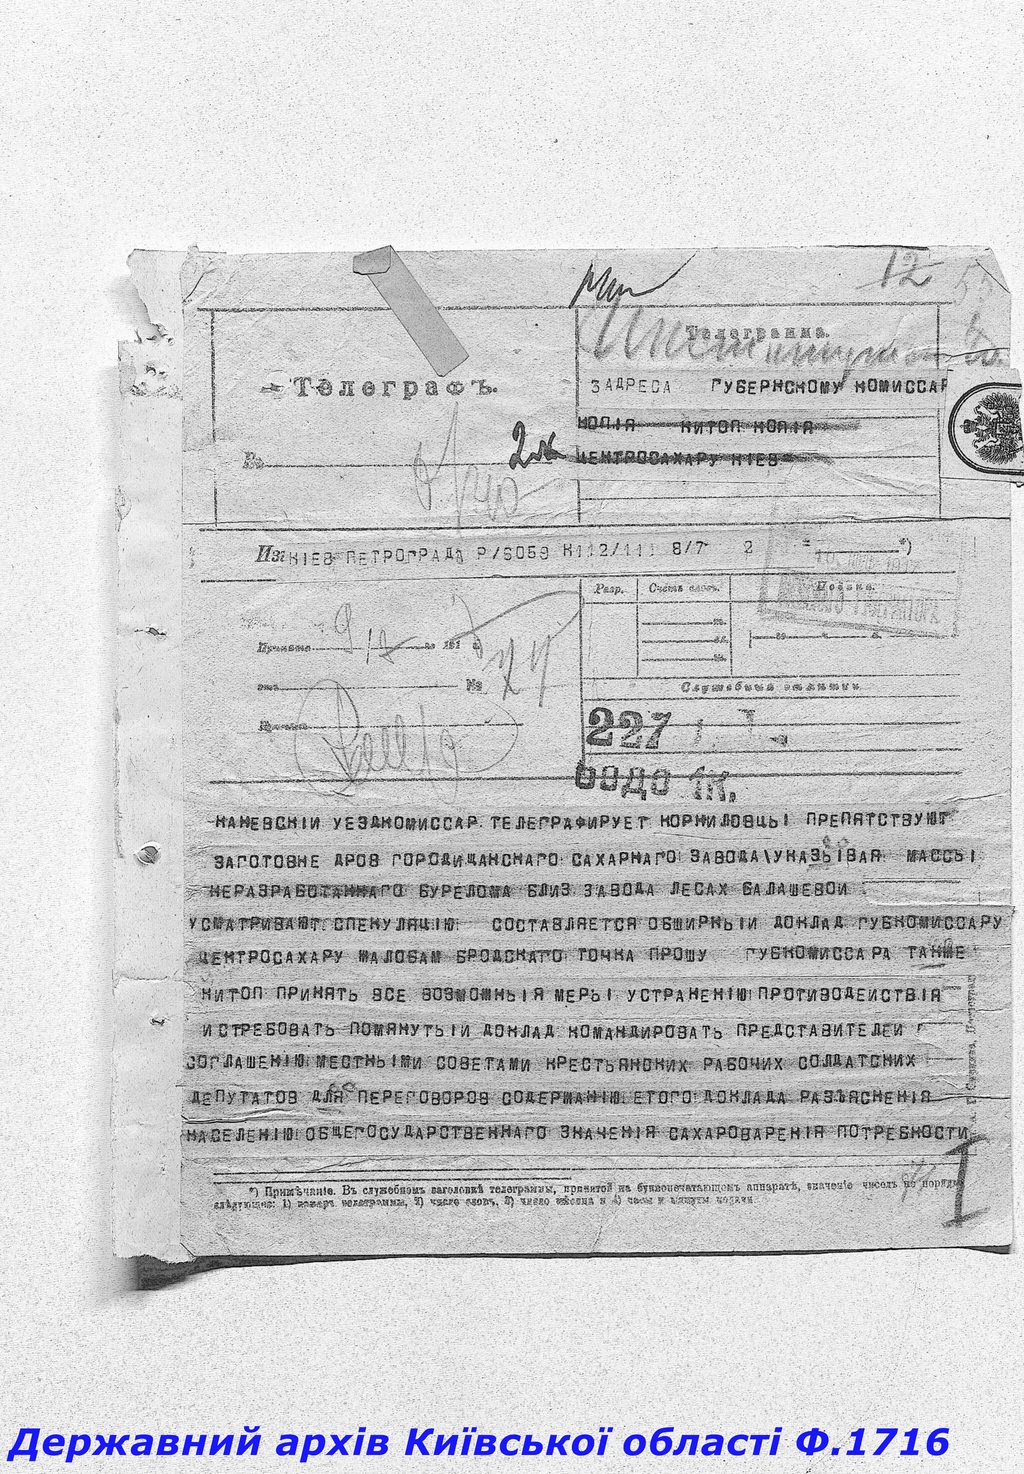 12
55
Телеграмма.
Телеграфъ.
3АДРЕСА ГУБЕРНСКОМУ КОМИССАР
КОПІЯ КИТОП КОПІЯ
ЦЕНТРОСАХАРУ КІЕВ
Въ
Изъ КІЕВ ПЕТРОГРАДА Р/6059 К112/111 8/7 2 = *)
Разр.
Счетъ словъ.
Подача.
Принята 9/ 191 г.
№
Принялъ
Служебныя отмѣтки
227
КАНЕВСКІЙ УЕЗДКОМИССАР ТЕЛЕГРАФИРУЕТ КОРНИЛОВЦЫ ПРЕПЯТСТВУЮТ
ЗАГОТОВКЕ ДРОВ ГОРОДИЩАНСКАГО САХАРНАГО ЗАВОДА\УКАЗЫВАЯ МАССЫ
НЕРАЗРАБОТАННАГО БУРЕЛОМА БЛИЗ ЗАВОДА ЛЕСАХ БАЛАШЕВОЙ
УСМАТРИВАЮТ СПЕКУЛЯЦІЮ СОСТАВЛЯЕТСЯ ОБШИРНЫЙ ДОКЛАД ГУБКОМИССАРУ
ЦЕНТРОСАХАРУ ЖАЛОБАМ БРОДСКАГО ТОЧКА ПРОШУ ГУБКОМИССАРА ТАКЖЕ
КИТОП ПРИНЯТЬ ВСЕ ВОЗМОЖНЫЯ МЕРЫ УСТРАНЕНІЮ ПРОТИВОДЕЙСТВІЯ
ИСТРЕБОВАТЬ ПОМЯНУТЫЙ ДОКЛАД КОМАНДИРОВАТЬ ПРЕДСТАВИТЕЛЕЙ
СОГЛАШЕНІЮ МЕСТНЫМИ СОВЕТАМИ КРЕСТЬЯНСКИХ РАБОЧИХ СОЛДАТСКИХ
ДЕПУТАТОВ ДЛЯ ПЕРЕГОВОРОВ СОДЕРЖАНІЮ ЕТОГО ДОКЛАДА РАЗЪЯСНЕНІЯ
НАСЕЛЕНІЮ ОБЩЕГОСУДАРСТВЕННАГО ЗНАЧЕНІЯ САХАРОВАРЕНІЯ ПОТРЕБНОСТИ
*) Примѣчаніе. Въ служебномъ заголовкѣ телеграммы, принятой на буквопечатающемъ аппаратѣ, значеніе чиселъ по порядку
слѣдующее: 1) номеръ телеграммы, 2) число словъ, 3) число мѣсяца и 4) часы и минуты подачи.
Державний архів Київської області Ф.1716